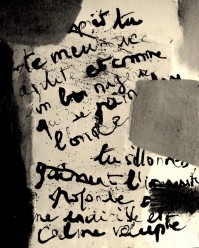 prit tu
te meus avec
agilité et comme
un bon nageur
qui se pâm
l'onde
tu sillonne
gaiment l'immensit
profonde
ne indicible et
volupté